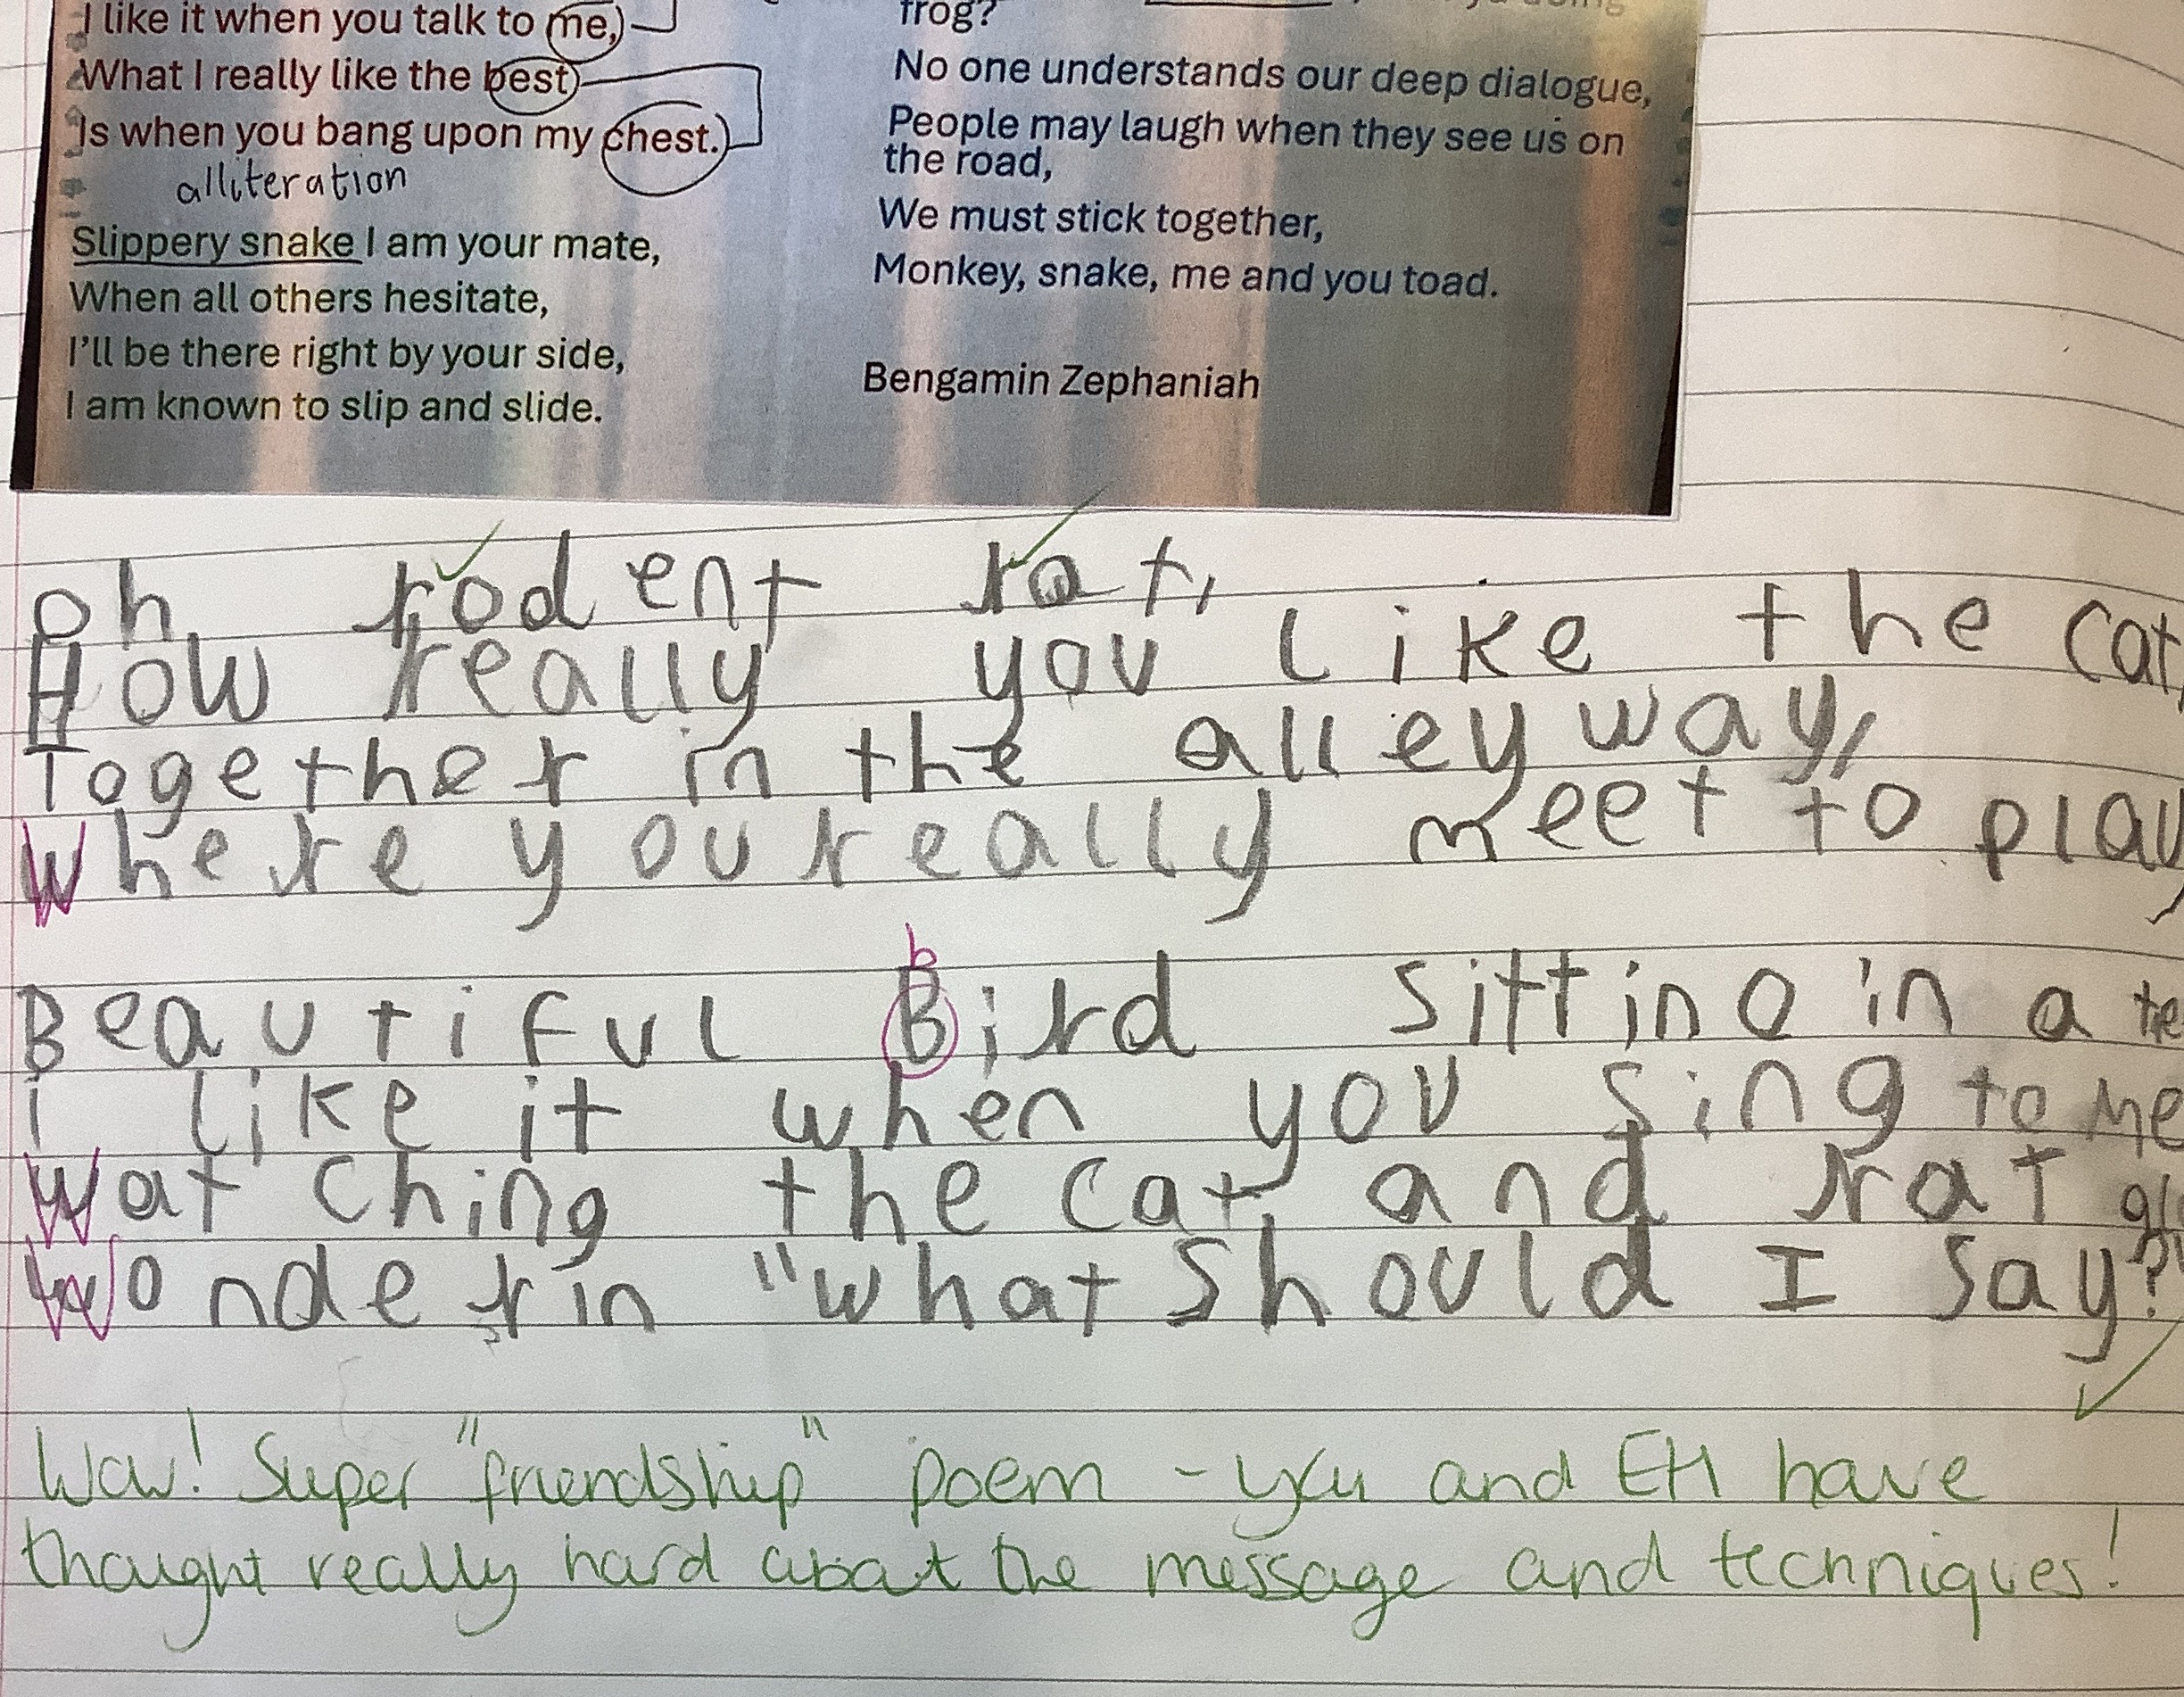 I like it when you talk to me,
What I really like the best
Is when you bang upon my chest.
alliteration
Slippery snake I am your mate,
When all others hesitate,
I'll be there right by your side,
I am known to slip and slide.
frog?
No one understands our deep dialogue,
People may laugh when they see us on
the road,
We must stick together,
Monkey, snake, me and you toad.
Bengamin Zephaniah
oh rodent rat,
How really you like the cat,
Together in the alley way,
Where you really meet to play
b
Beautiful Bird sitting in a
i like it when you sing to me
Watching the cat and rat
Wonderin "what should I say?"
Wow! Super "friendship" poem - you and EH have
thought really hard about the message and techniques!